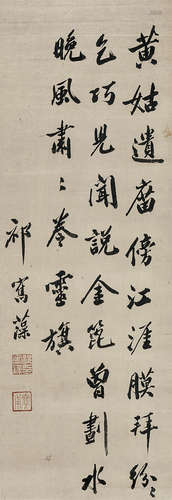 黃姑遺廟傍江涯膜拜紛〻
乞巧兒聞說金篦曾劃水
晚風肅〻卷靈旗
祁寯藻